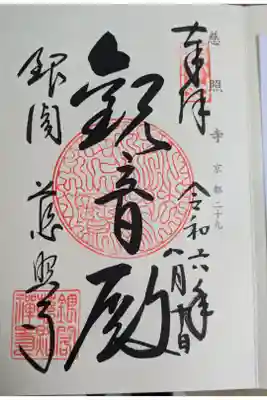 慈照寺 京都二十九
奉拝
令和六年
八月十日
観音殿
銀閣 慈照寺